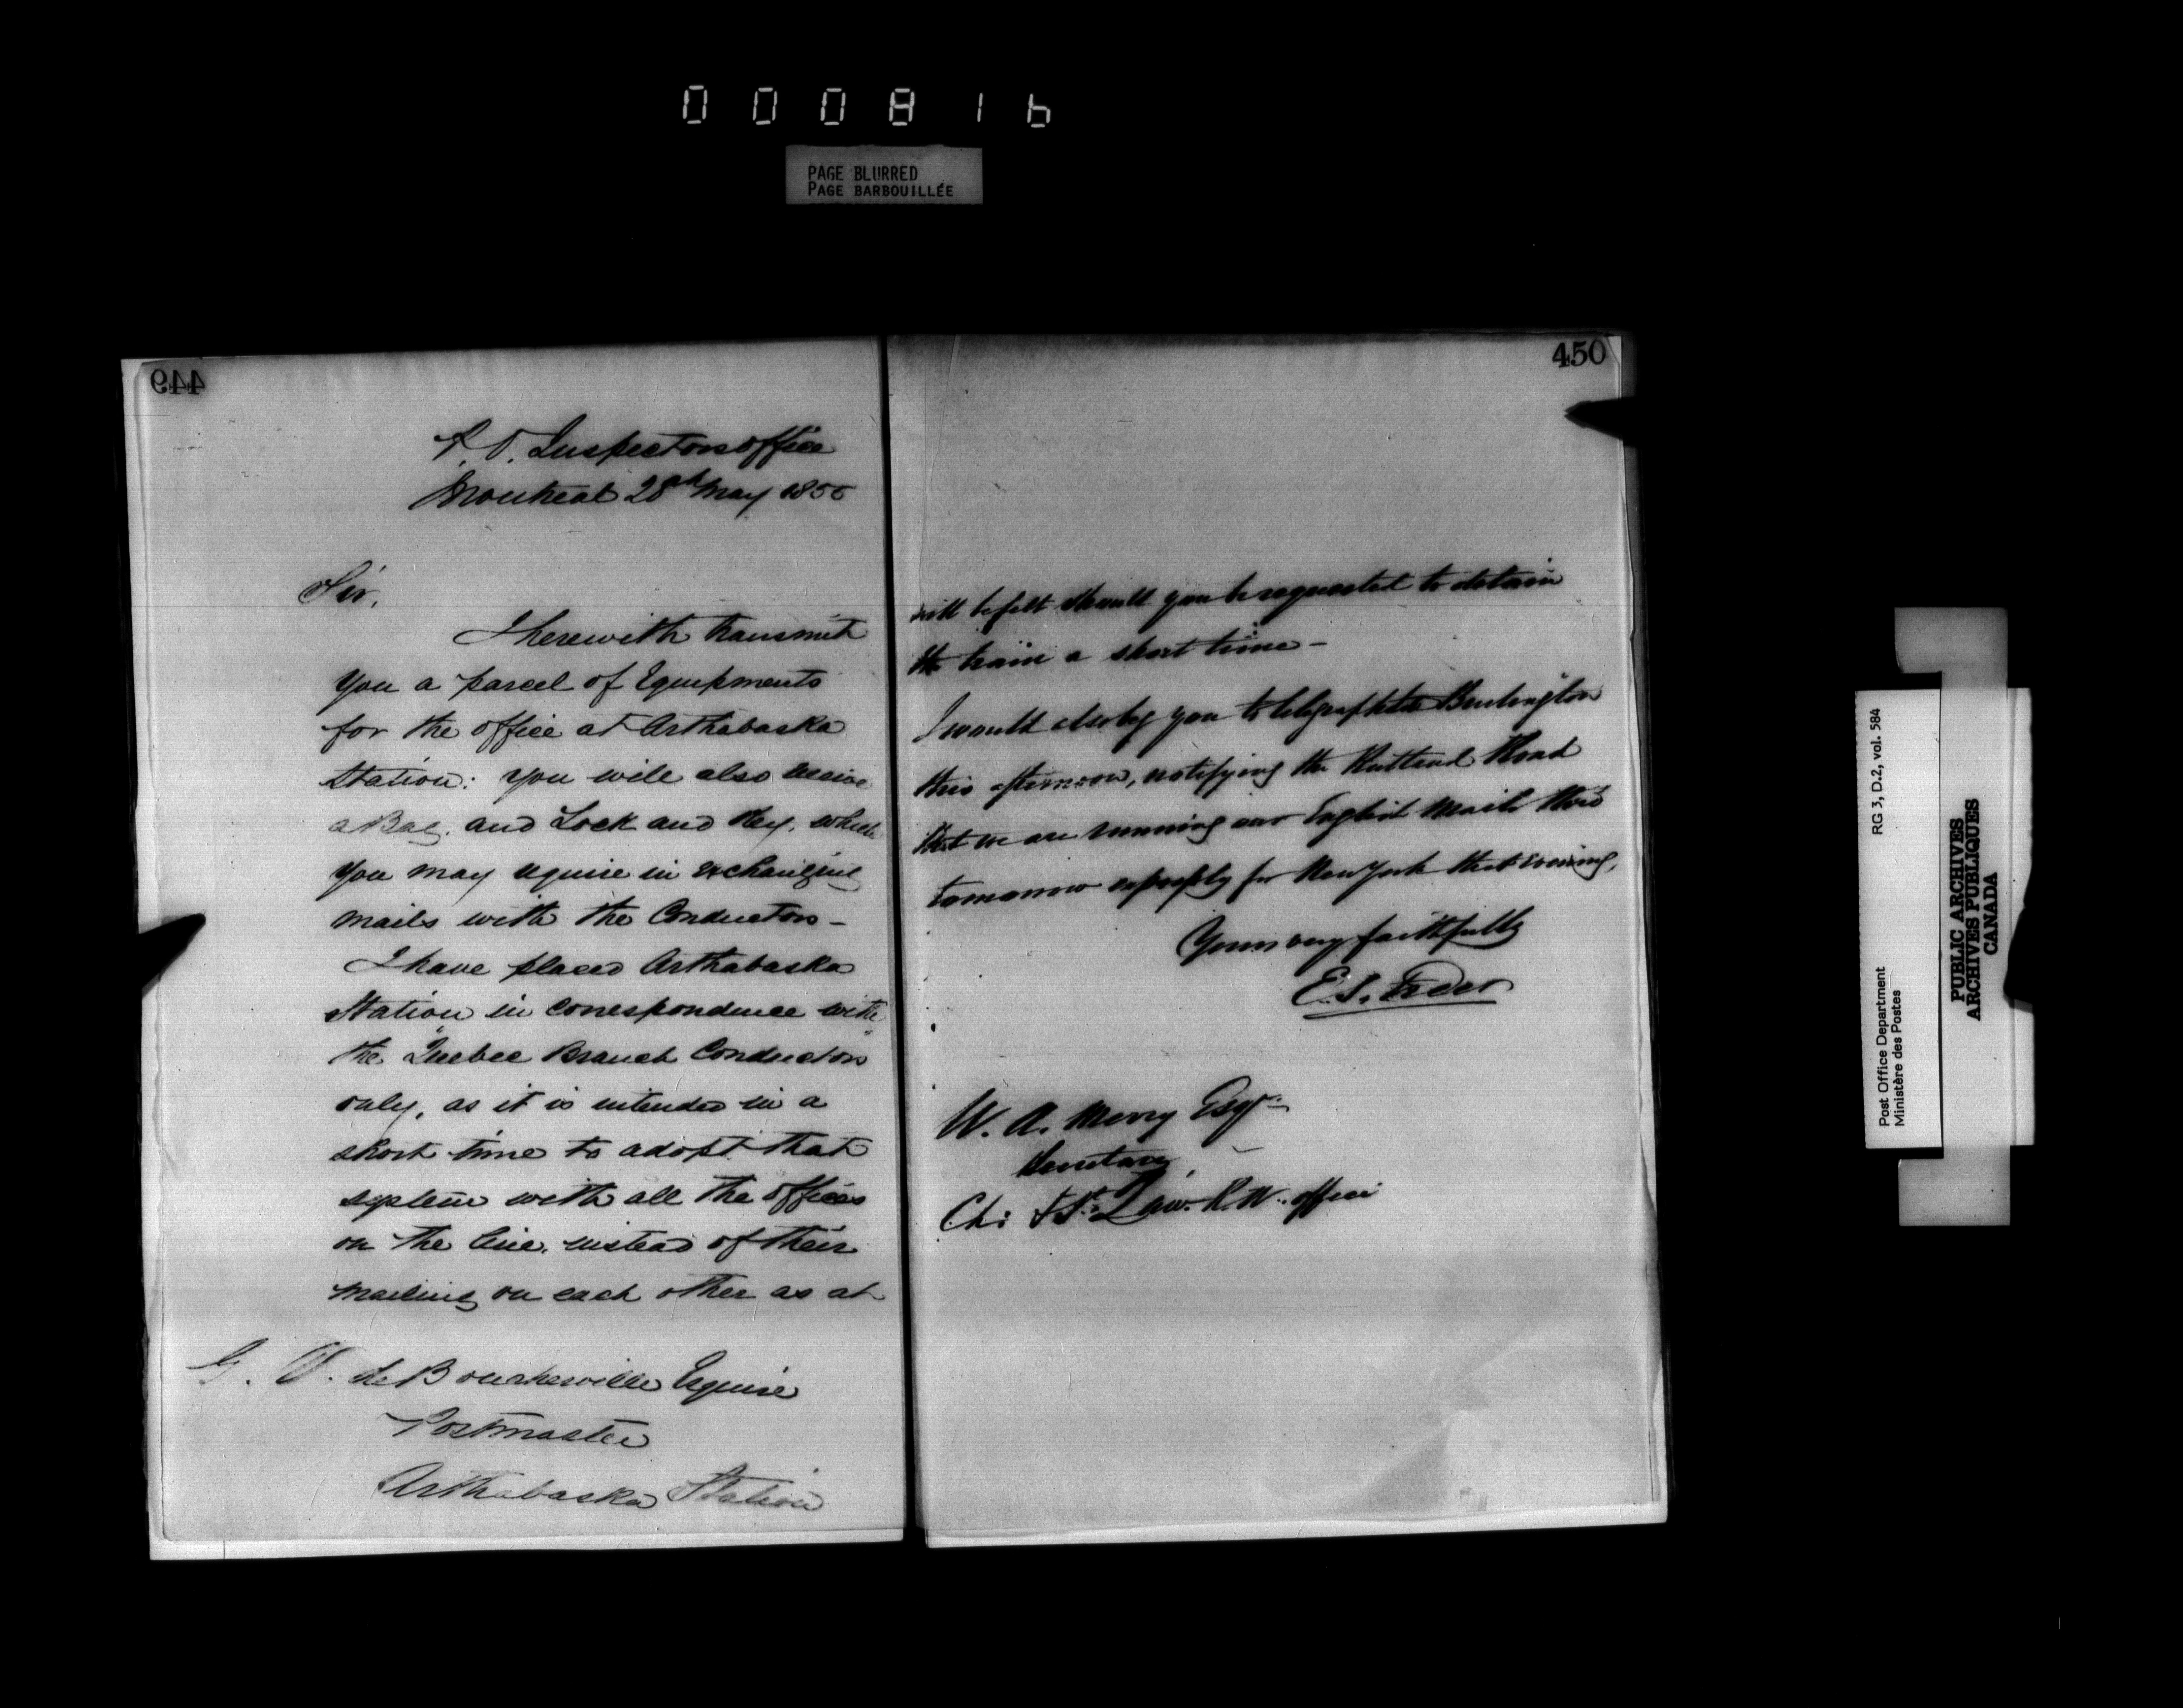 000816
PAGE BLURRED
PAGE BARBOUILLÉE
449
P.O. Inspectors office
Montreal 28th May 1855
Sir,
I herewith transmit
you a parcel of Equipments
for the office at Arthabaska
Station: you will also receive
a Bag. and Lock and Key. which
you may require in exchanging
mails with the Conductors -
I have placed Arthabaska
Station in correspondence with
the Quebec Branch Conductors
only, as it is intended in a
short time to adopt that
system with all the offices
on the line. instead of their
mailing on each other as at
G. V. de Boucherville Esquire
Postmaster
Arthabaska Station
450
will be felt should you be requested to detain
the train a short time -
I would also beg you to telegraph to Burlington
this afternoon, notifying the Rutland Road
that we are running our English Mails
tomorrow expressly for New York that evening,
Yours very faithfully
E. S. Freer
W. A. Merry Esqr
Secretary
Ch: & St. Law. R.W. office
Post Office Department
Ministère des Postes
RG 3, D.2, vol. 584
PUBLIC ARCHIVES
ARCHIVES PUBLIQUES
CANADA